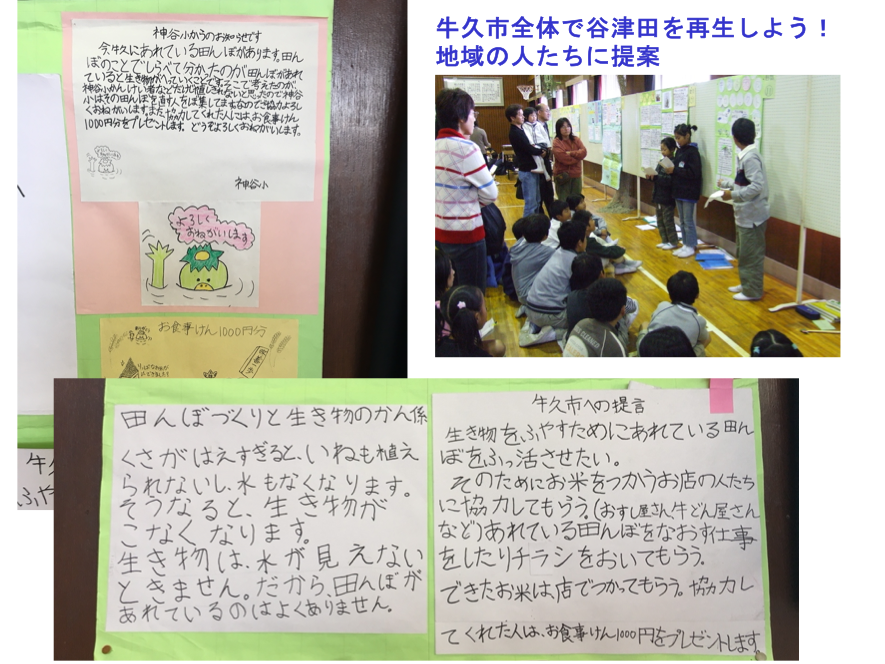 牛久市全体で谷津田を再生しよう！
地域の人たちに提案
神谷小からのお知らせです
今、牛久にあれている田んぼがあります。田ん
ぼのことでしらべて分かたのが田んぼがあれ
ていると生き物がへっていくことです。そこで考えたのが、
神谷小かんけい者などだけは直しきれないと思ったので神谷
小はその田んぼを直す人をぼ集してますなのでご協力よろし
くおねがいします。また、協力してくれた人には、お食事けん
1000円分をプレゼントします。どうぞよろしくおねがいします。
神谷小
よろしく
おねがいします
お食事けん1000円分
田んぼづくりと生き物のかん係
くさがはえすぎると、いねも植え
られないし、水もなくなります。
そうなると、生き物が
こなくなります。
生き物は、水が見えない
ときません。だから、田んぼが
あれているのはよくありません。
牛久市への提言
生き物をふやすためにあれている田ん
ぼをふっ活させたい。
そのためにお米をつかうお店の人たち
に協力してもらう。(おすし屋さん、牛どん屋さん
など)あれている田んぼをなおす仕事
をしたりチラシをおいてもらう。
できたお米は、店でつかってもらう。協力し
てくれた人は、お食事けん1000円をプレゼントします